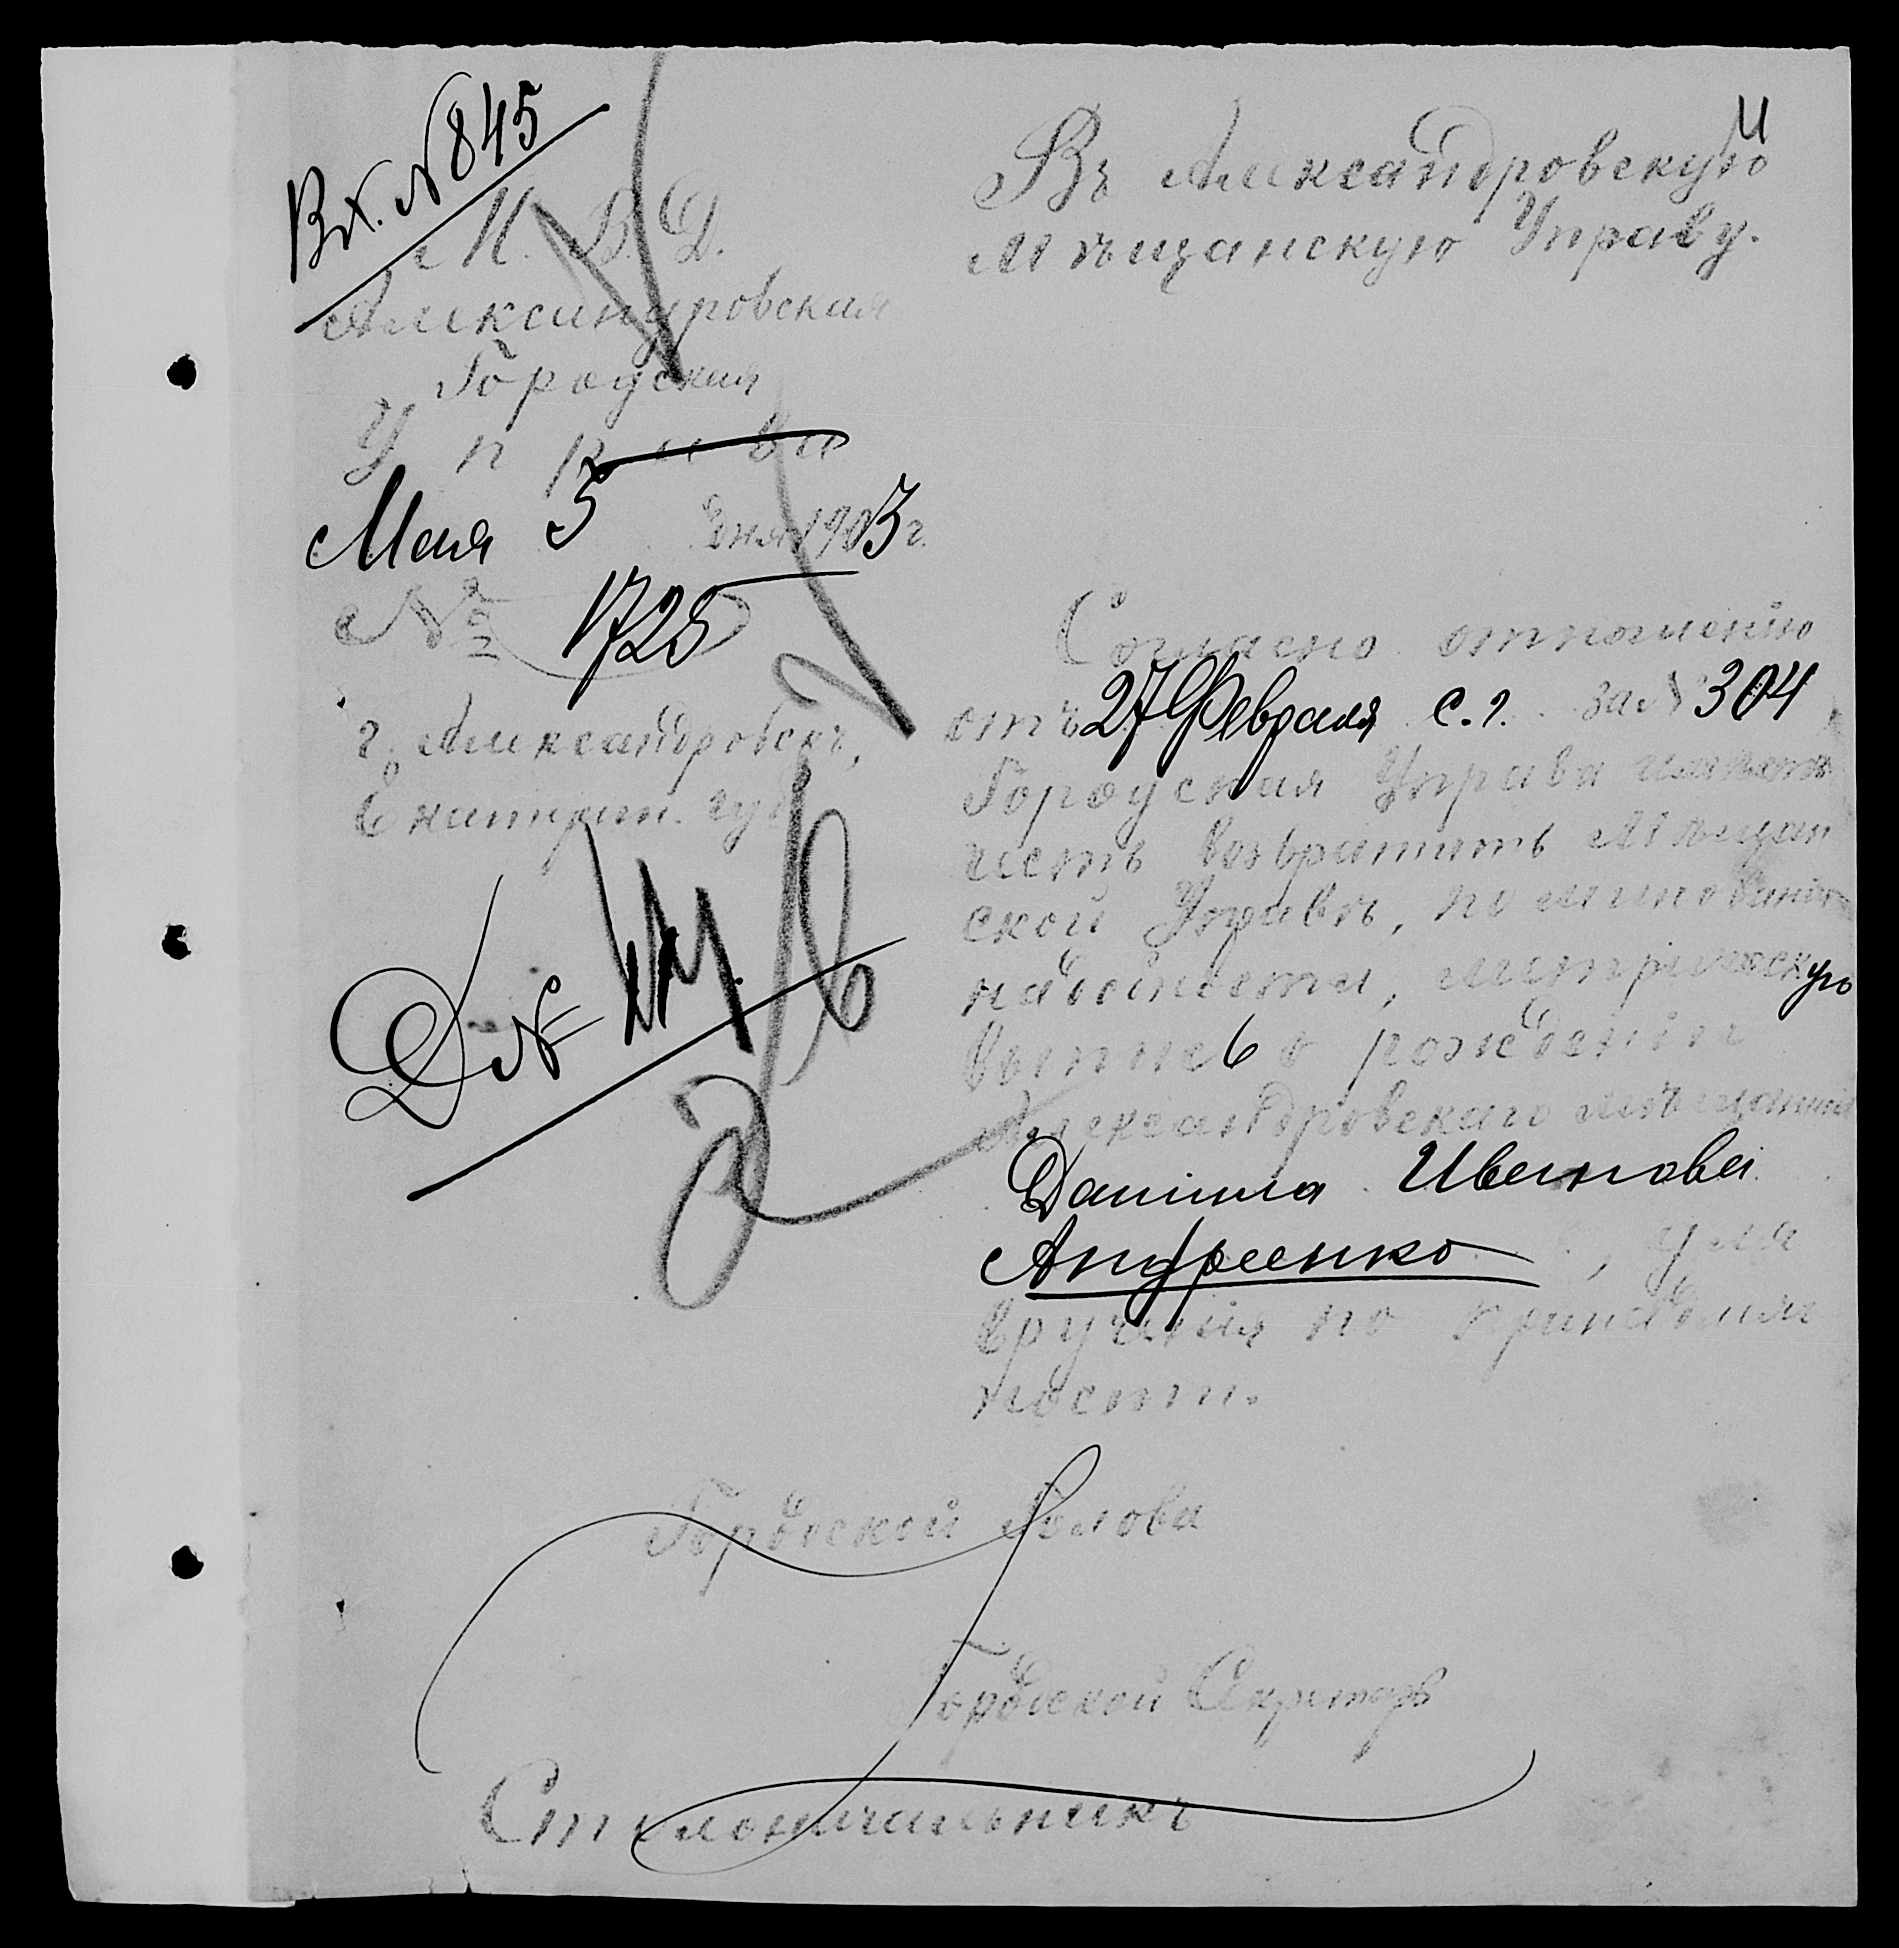 Вх. № 845
М. В. Д.
Александровская
Городская
Управа
Мая 5 дня 1903 г.
№ 1725
г. Александровскъ,
Екатерин. губ.
Д №
Въ Александровскую
Мѣщанскую Управу.
Согласно отношенію
отъ 27 Февраля с. г. за № 304
Городская Управа имѣетъ
честь возвратить Мѣщан
ской Управѣ, по минованіи
надобности, метрическую
выпись о рожденіи
Александровскаго мѣщанина
Даніила Иванова
Андреенко, для
врученія по принадлеж
ности.
Городской Голова
Городской Секретарь
Столоначальникъ